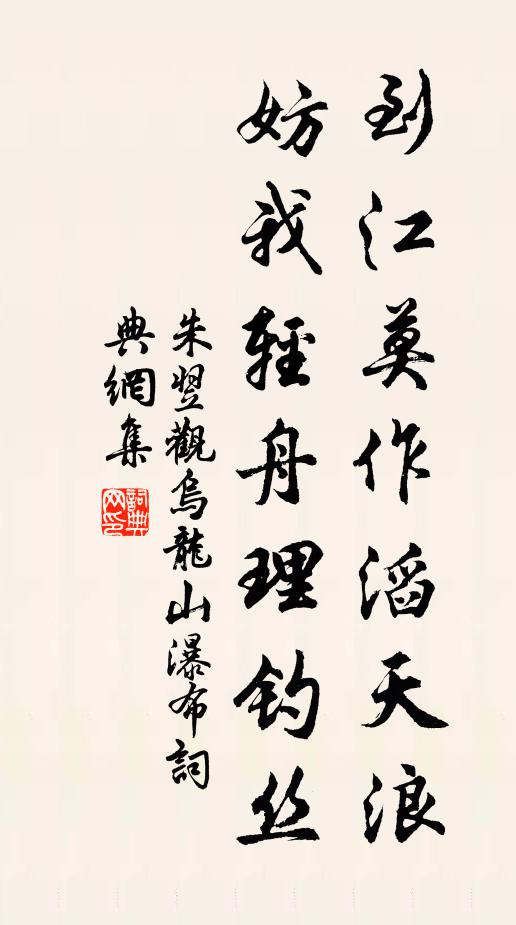 到江莫作滔天浪
妨我輕舟理钓丝
朱翌觀烏龍山瀑布詞
典網集
詞典网印